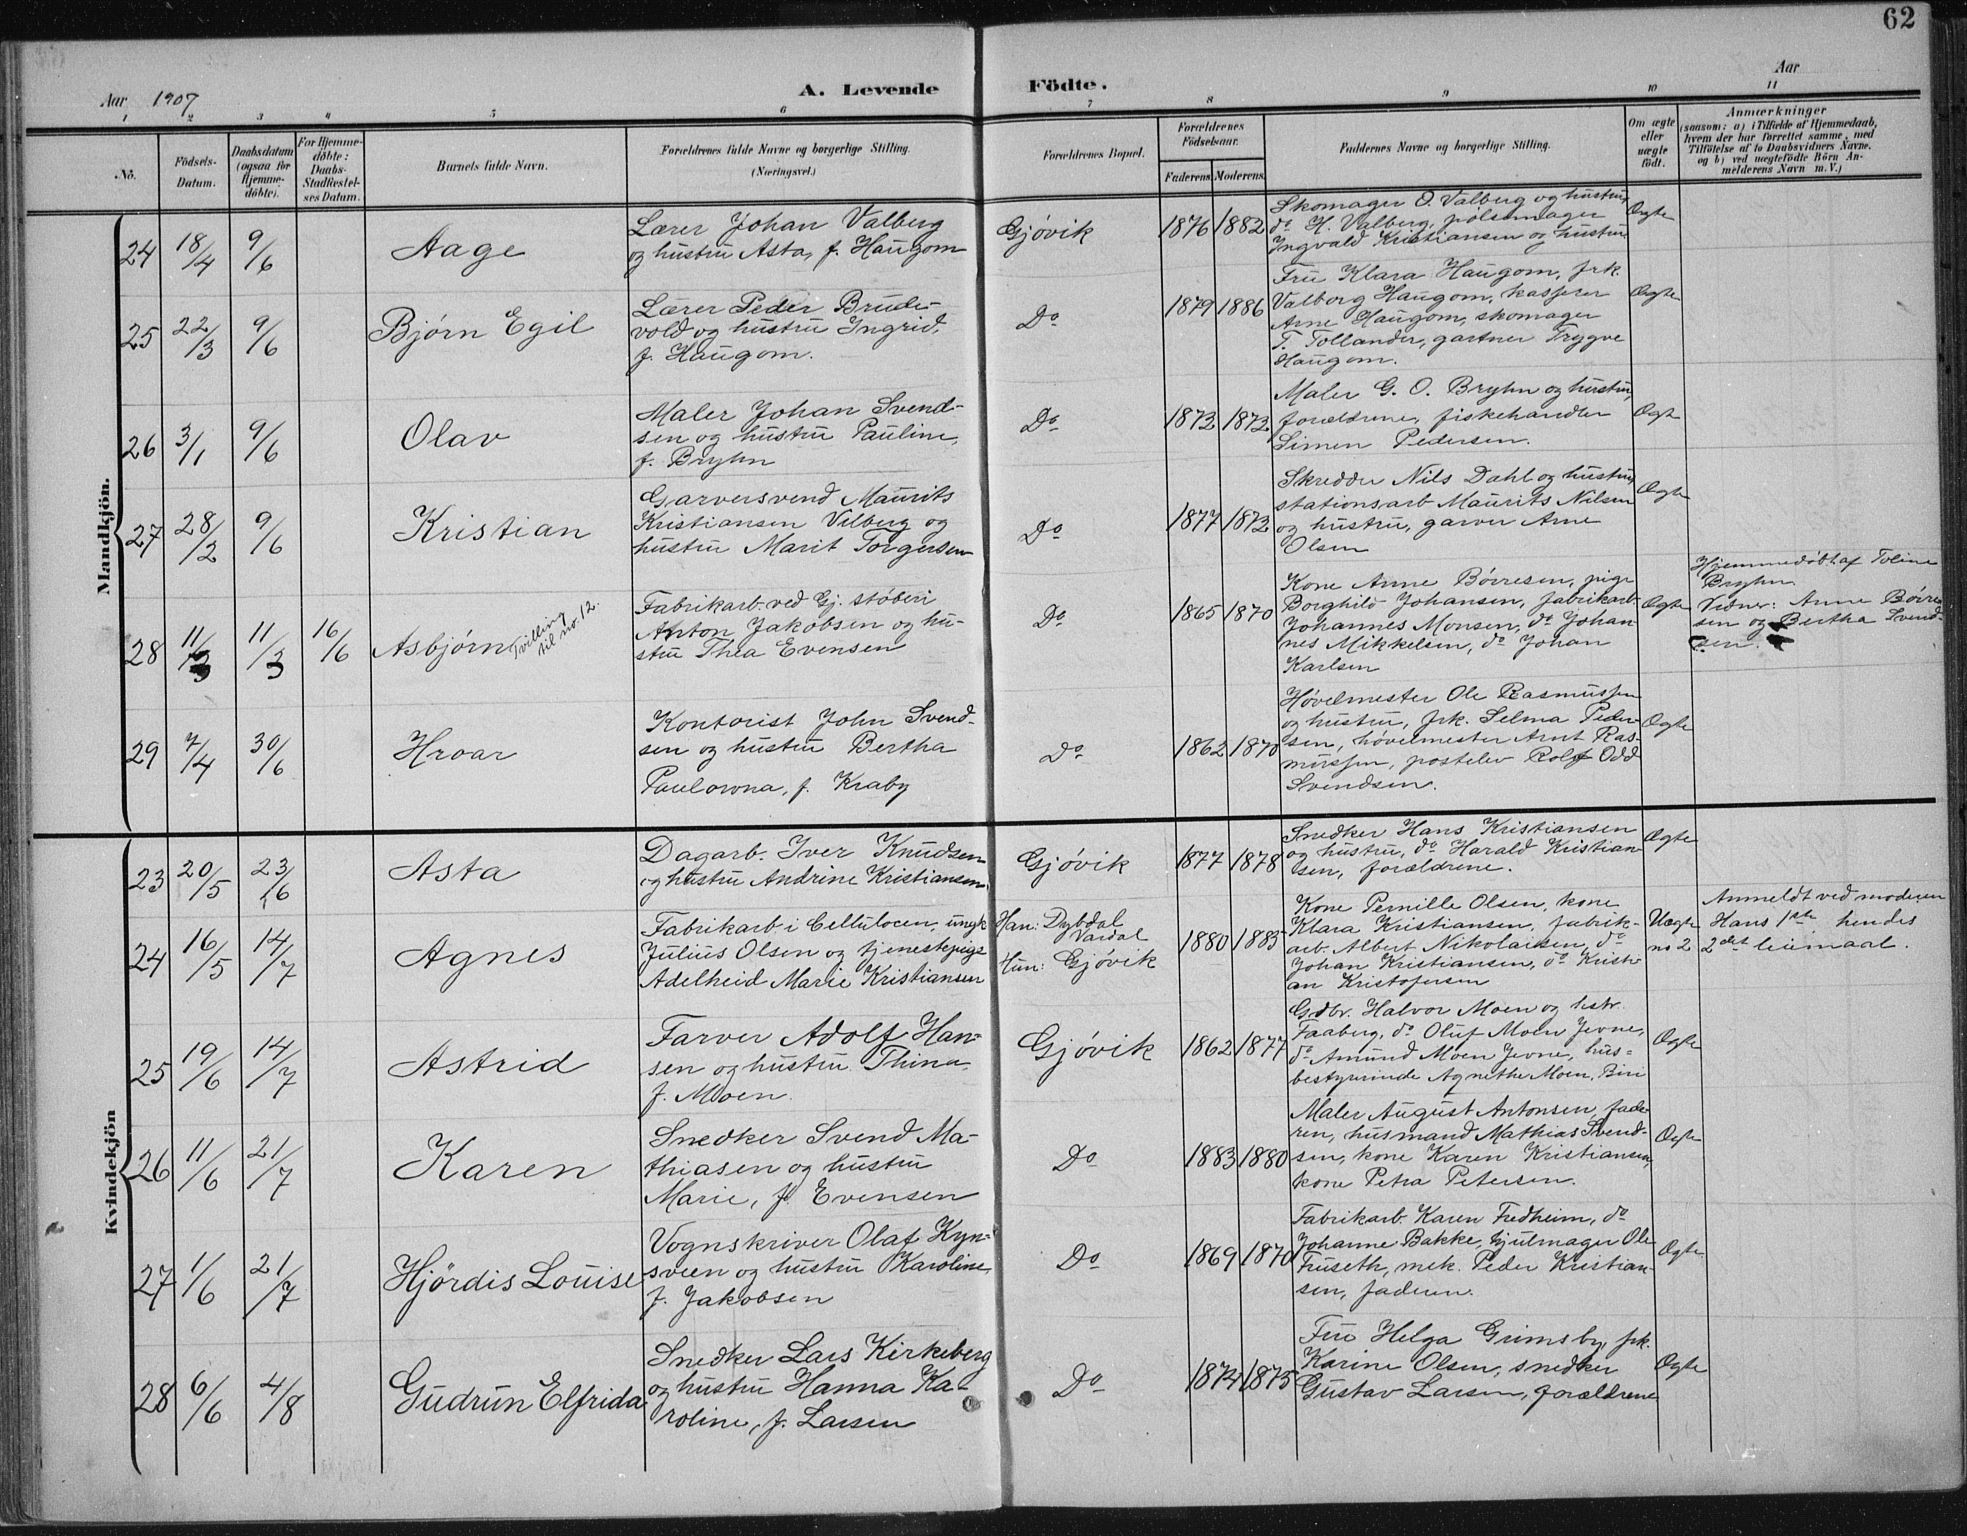 62
Aar 1907
A. Levende Födte.
Aar
1 2 3 4 5 6 7 8 9 10 11
No.
Födsels-
Datum.
Daabsdatum
(ogsaa for
Hjemme-
döbte).
For Hjemme-
döbte:
Daabs-
Stadfæstel-
ses Datum.
Barnets fulde Navn.
Forældrenes fulde Navne og borgerlige Stilling.
(Næringsvei.)
Forældrenes Bopæl.
Forældrenes
Födselsaar.
Faderens. Moderens.
Faddernes Navne og borgerlige Stilling.
Om ægte
eller
uægte
födt.
Anmærkninger
(saasom: a) i Tilfælde af Hjemmedaab,
hvem der har forrettet samme, med
Tilföielse af to Daabsvidners Navne.
og b) ved uægtefödte Börn An-
melderens Navn m. V.)
Mandkjön.
24 18/4 9/6 Aage
Lærer Johan Valberg
og hustru Asta, f. Haugom
Gjøvik 1876 1882
Skomager O. Valberg og hustru,
do H. Valberg, pølsemager
Ingvald Kristiansen og hustru
Ægte
25 22/3 9/6 Bjørn Egil
Lærer Peder Brude-
vold og hustru Ingrid,
f. Haugom.
Do 1879 1886
Fru Klara Haugom, frk.
Valborg Haugom, kasserer
Arne Haugom, skomager
T. Tollander, gartner Trygve
Haugom.
Ægte
26 3/1 9/6 Olav
Maler Johan Svend-
sen og hustru Pauline,
f. Bryhn
Do 1873 1873
Maler G. O. Bryhn og hustru,
forældrene, fiskehandler
Simen Pedersen.
Ægte
27 28/2 9/6 Kristian
Garversvend Maurits
Kristiansen Vilberg og
hustru Marit Torgersen
Do 1877 1873
Skredder Nils Dahl og hustru,
stationsarb Maurits Nilsen
og hustru, garver Arne
Olsen
Ægte
28 11/3 11/3 16/6 Asbjørn Tvilling
til no. 12.
Fabrikarb. ved Gj. støberi
Anton Jakobsen og hu-
stru Thea Evensen
Do 1865 1870
Kone Anne Børresen, pige
Borghild Johansen, fabrikarb.
Johannes Monsen, do Johan
nes Mikkelsen, do Johan
Karlsen
Ægte
Hjemmedøbt af Toline
Bryhn.
Vidner: Anne Børre-
sen og Bertha Svend-
sen.
29 7/4 30/6 Hroar
Kontorist John Svend-
sen og hustru Bertha
Paulowna, f. Kraby
Do 1862 1870
Høvelmester Ole Rasmussen
og hustru, frk. Selma Peder-
sen, høvelmester Arnt Ras-
mussen, postelev Rolf Odd
Svendsen.
Ægte
Kvindekjön
23 20/5 23/6 Asta
Dagarb. Iver Knudsen
og hustru Andrine Kristiansen.
Gjøvik 1877 1878
Snedker Hans Kristiansen
og hustru, do Harald Kristian-
sen, forældrene.
Ægte
24 16/5 14/7 Agnes
Fabrikarb i Cellulosen, ungk
Julius Olsen og tjenestepige
Adelheid Marie Kristiansen
Han: Dybdal
Vardal
Hun: Gjøvik
1880 1883
Kone Pernille Olsen, kone
Klara Kristiansen, fabrik-
arb. Albert Nikolaisen, do
Johan Kristiansen, do Kristi-
an Kristofersen
Uægte
no 2
Anmeldt ved moderen
Hans 1ste hendes
2det leiemaal.
25 19/6 14/7 Astrid
Farver Adolf Han-
sen og hustru Thina
f. Moen.
Gjøvik 1862 1877
Gdbr. Halvor Moen og hstr.
Faaberg, do Oluf Moen Jevne,
do Amund Moen Jevne, hus-
bestyrerinde Agnethe Moen, Biri
Ægte
26 11/6 21/7 Karen
Snedker Svend Ma-
thiasen og hustru
Marie, f. Evensen
Do 1883 1880
Maler August Antonsen, fade-
ren, husmand Mathias Svend-
sen, kone Karen Kristiansen,
kone Petra Petersen.
Ægte
27 1/6 21/7 Hjördis Louise
Vognskriver Olaf Kyn-
sveen og hustru Karoline,
f. Jakobsen
Do 1869 1870
Fabrikarb. Karen Fredheim, do
Johanne Bakke, hjulmager Ole
Fuseth, mek. Peder Kristian-
sen, faderen.
Ægte
28 6/6 4/8 Gudrun Elfrida
Snedker Lars Kirkeberg
og hustru Hanna Ka-
roline, f. Larsen
Do 1874 1875
Fru Helga Grimsby, frk.
Karine Olsen, snedker
Gustav Larsen, forældrene
Ægte